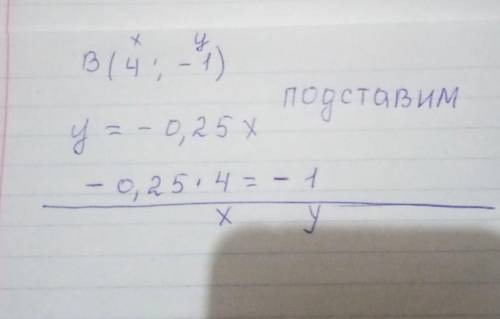 x y
B(4; -1)
подставим
y = - 0,25 x
- 0,25 · 4 = - 1
x y